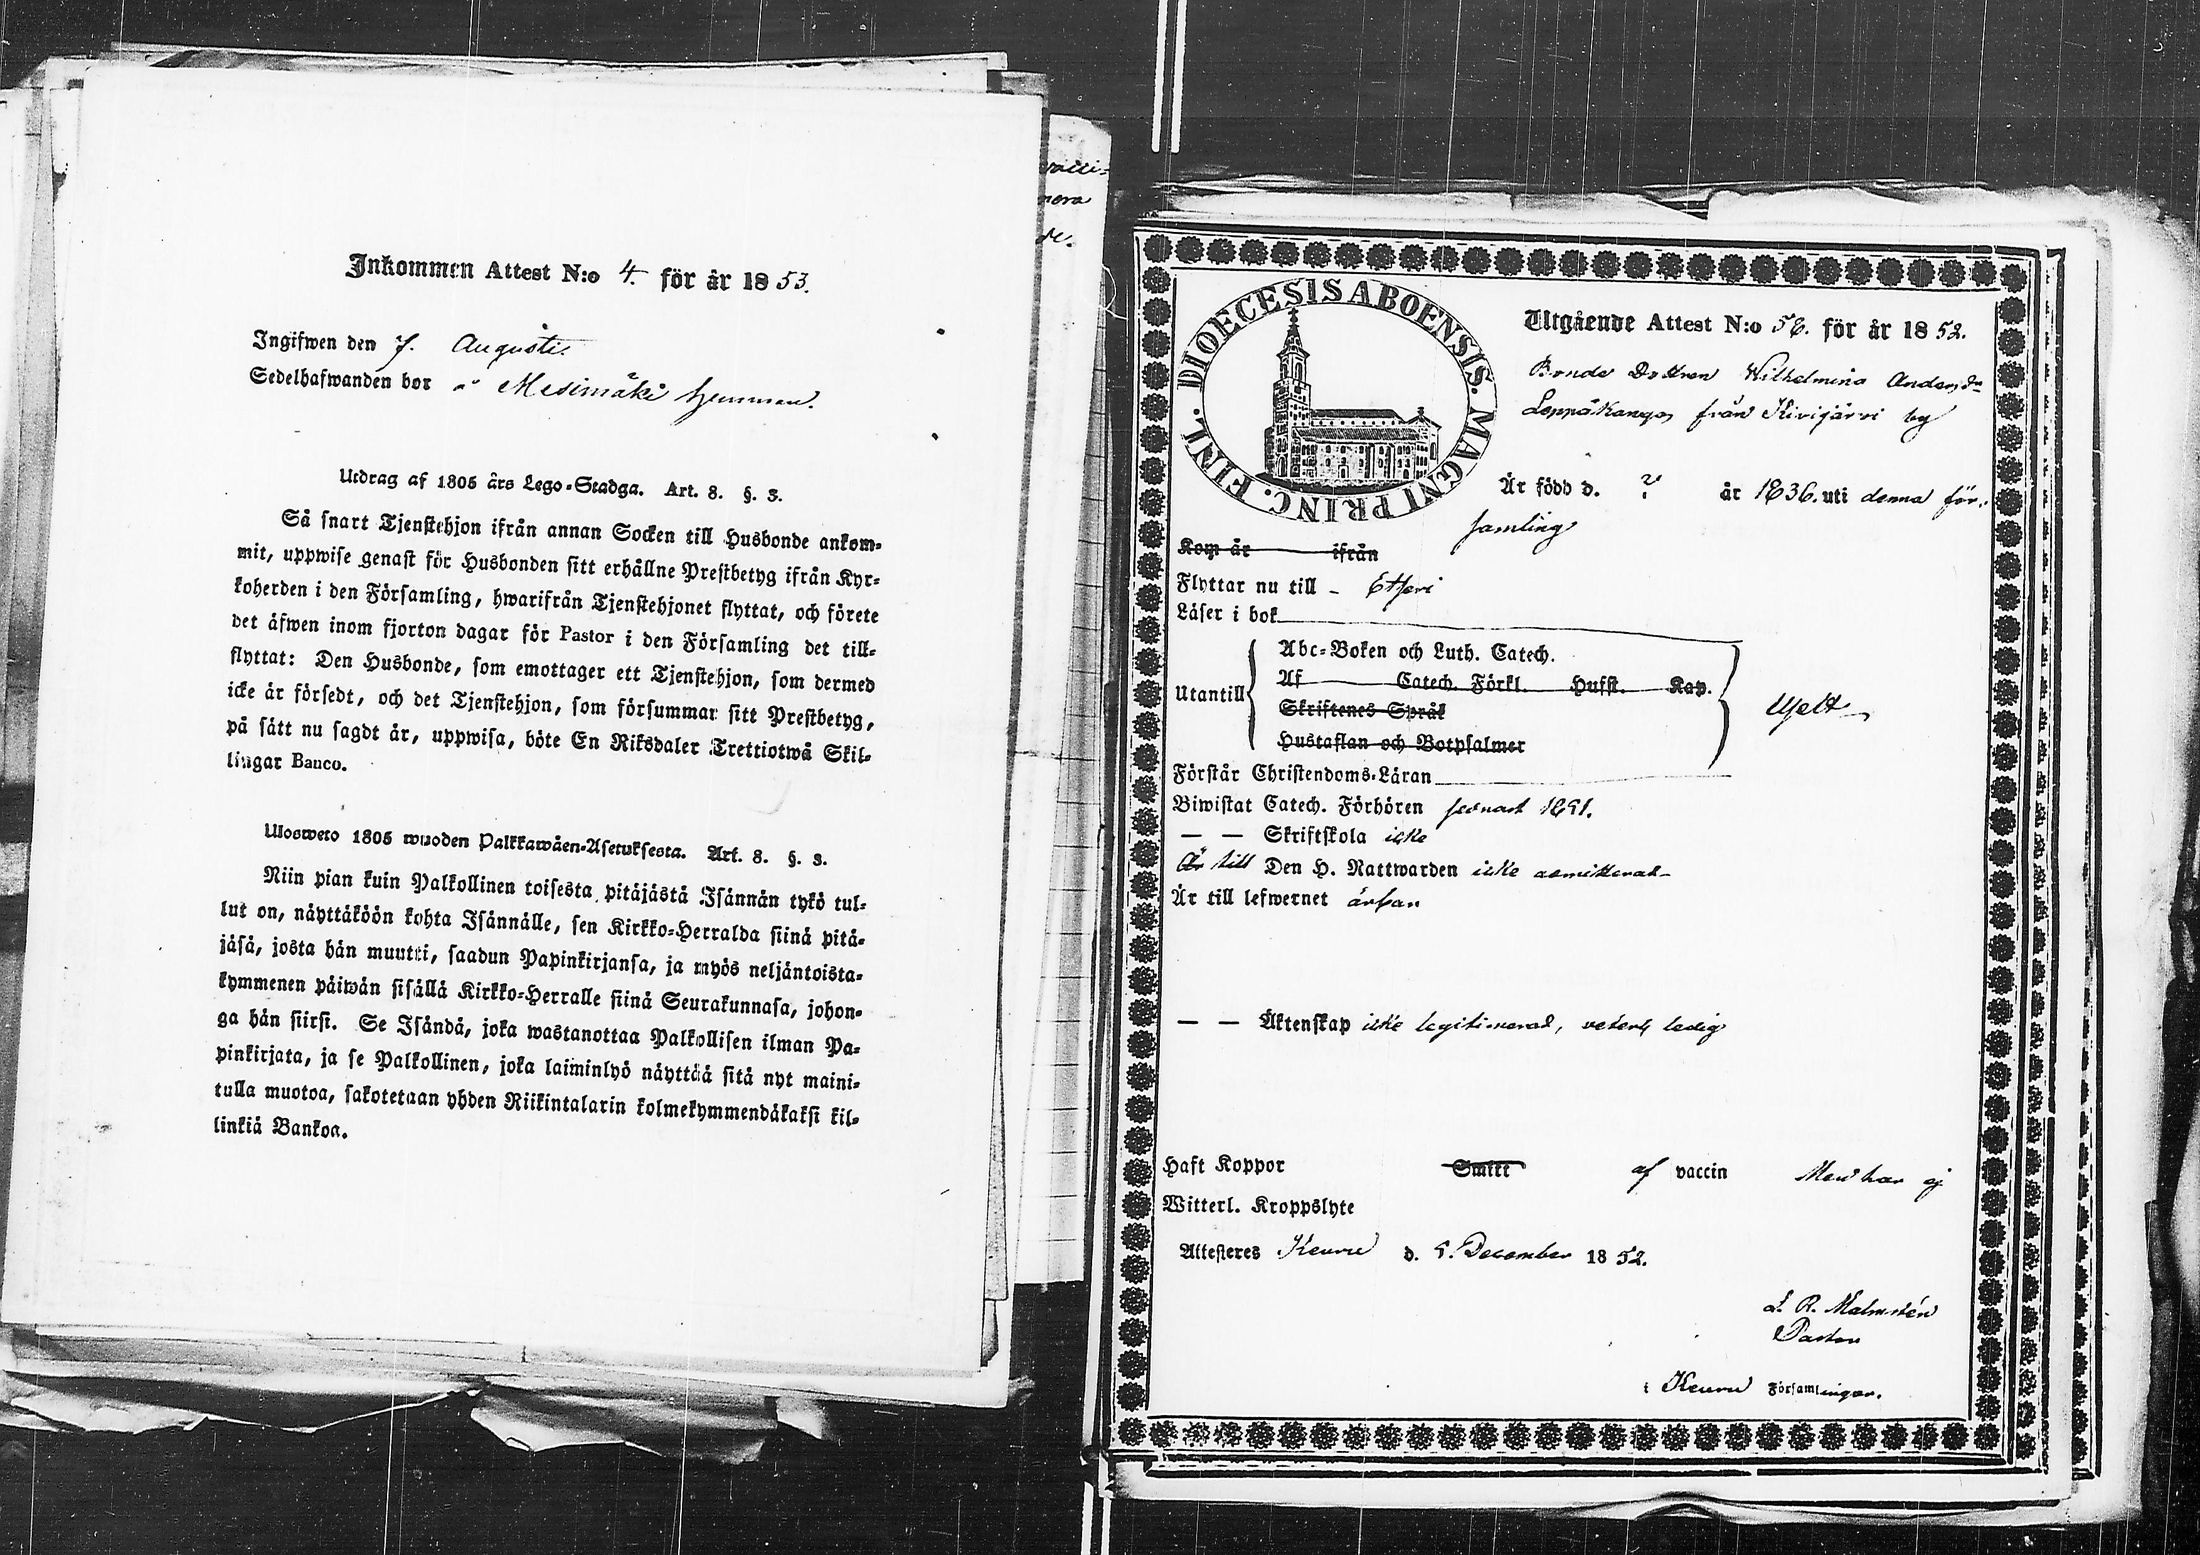 Inkommen Attest N:o 4. för år 1853.
Ingifwen den 7. Augusti.
Sedelhafwanden bor å Mesimäki hemman.
Utdrag af 1805 års Lego-Stadga. Art. 8. §. 3.
Så snart Tjenstehjon ifrån annan Socken till Husbonde ankom-
mit, uppwise genast för Husbonden sitt erhållne Prestbetyg ifrån Kyr-
koherden i den Församling, hwarifrån Tjenstehjonet flyttat, och förete
det äfwen inom fjorton dagar för Pastor i den Församling det till-
flyttat: Den Husbonde, som emottager ett Tjenstehjon, som dermed
icke är försedt, och det Tjenstehjon, som försummar sitt Prestbetyg,
på sätt nu sagdt är, uppwisa, böte En Riksdaler Trettiotwå Skil-
lingar Banco.
Ulosweto 1805 wuoden Palkkawäen-Asetuksesta. Art. 8. §. 3.
Niin pian kuin Palkollinen toisesta pitäjästä Isännän tykö tul-
lut on, näyttäköön kohta Isännälle, sen Kirkko-Herralda siinä pitä-
jäsä, josta hän muutti, saadun Papinkirjansa, ja myös neljäntoista-
kymmenen päiwän sisällä Kirkko-Herralle siinä Seurakunnasa, johon-
ga hän siirsi. Se Isändä, joka wastanottaa Palkollisen ilman Pa-
pinkirjata, ja se Palkollinen, joka laiminlyö näyttää sitä nyt maini-
tulla muotoa, sakotetaan yhden Riikintalarin kolmekymmendäkaksi kil-
linkiä Bankoa.
DIOECESIS ABOENSIS. MAGNI PRINC. FINL.
Utgående Attest N:o 58. för år 1852.
Bonde Dottren Wilhelmina Andersdr
Leppäkangas från Kivijärvi by
Är född d. ? år 1836. uti denna för-
samling
Kom år ifrån
Flyttar nu till - Etseri
Läser i bok
Utantill
Abc-Boken och Luth. Catech.
Af Catech. Förkl. Husst. Kap.
Skriftenes Språk
Hustaflan och Botpsalmer
Förstår Christendoms-Läran
Biwistat Catech. Förhören senast 1851.
— — Skriftskola icke
Är till Den H. Nattwarden icke admitterad
Är till lefwernet ärbar
— — Äktenskap icke legitimerad, veterl. ledig
Haft Koppor Smitt af vaccin Men har ej
Witterl. Kroppslyte
Attesteres Keuru d. 5. December 1852.
L. R. Malmstén
Pastor
i Keuru Församlingar.